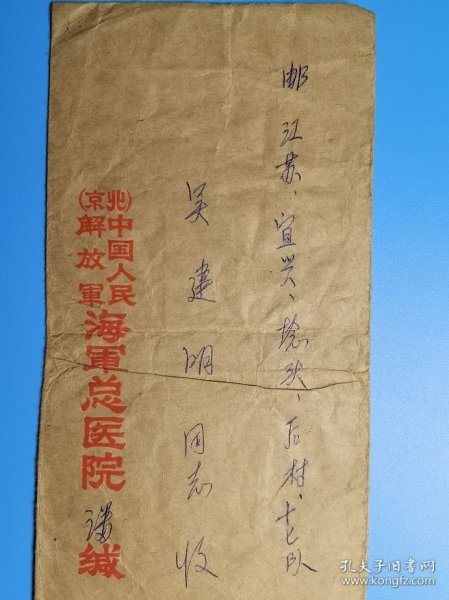 邮 江苏、宜兴、埝头、后村、十七队
吴建明同志收
(北京)中国人民解放軍海軍总医院 潘 缄
孔夫子旧书网
kongfz.com